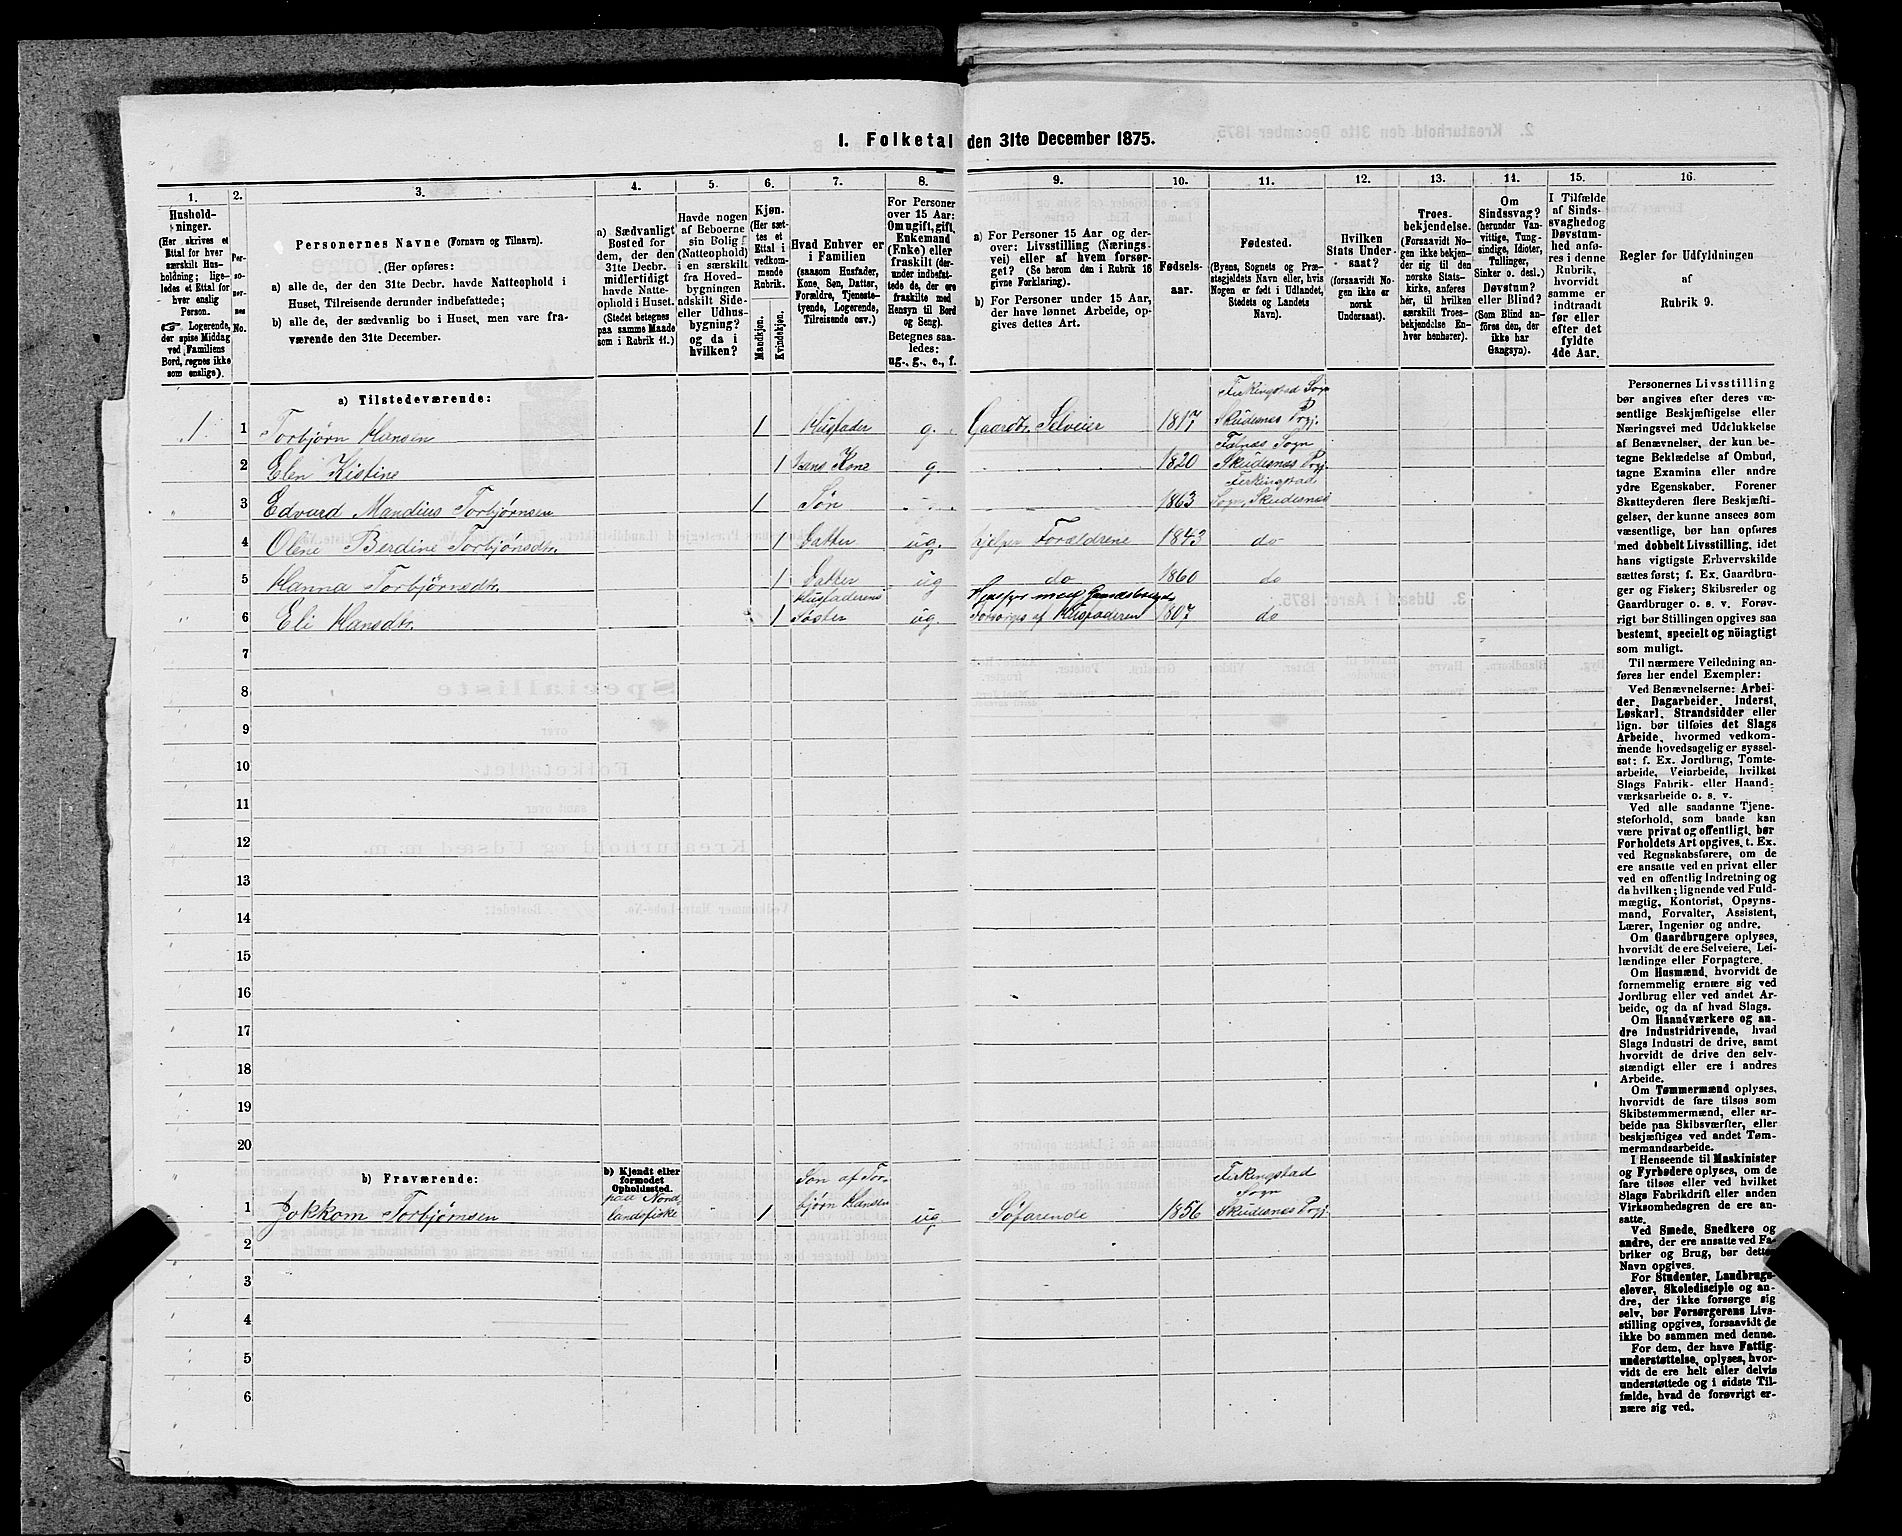 1. Folketal den 31te December 1875.
1.
Hushold-
ninger.
(Her skrives et
Ettal for hver
særskilt Hus-
holdning; lige-
ledes et Ettal for
hver enslig
Person.
Logerende,
der spise Middag
ved Familiens
Bord, regnes ikke
som enslige).
2.
Per-
so-
ner-
nes
No.
3.
Personernes Navne (Fornavn og Tilnavn).
(Her opføres:
a) alle de, der den 31te Decbr. havde Natteophold i
Huset, Tilreisende derunder indbefattede;
b) alle de, der sædvanlig bo i Huset, men vare fra-
værende den 31te December.
4.
a) Sædvanligt
Bosted for
dem, der den
31te Decbr.
midlertidigt
havde Natte-
ophold i Huset.
(Stedet betegnes
paa samme Maade
som i Rubrik 11.)
5.
Havde nogen
af Beboerne
sin Bolig
(Natteophold)
i en særskilt
fra Hoved-
bygningen
adskilt Side-
eller Udhus-
bygning?
og da i
hvilken?
6.
Kjøn.
(Her sæt-
tes et
Ettal i
vedkom-
mende
Rubrik.
Mandkjøn.
Kvindekjøn.
7.
Hvad Enhver er
i Familien
(saasom Husfader,
Kone, Søn, Datter,
Forældre, Tjeneste-
tyende, Logerende,
Tilreisende osv.)
8.
For Personer
over 15 Aar:
Om ugift, gift,
Enkemand
(Enke) eller
fraskilt (der-
under indbefat-
tede de, der ere
fraskilte med
Hensyn til Bord
og Seng).
Betegnes saa-
ledes:
ug., g., e., f.
9.
a) For Personer 15 Aar og der-
over: Livsstilling (Nærings-
vei) eller af hvem forsør-
get? (Se herom den i Rubrik 16
givne Forklaring).
b) For Personer under 15 Aar,
der have lønnet Arbeide, op-
gives dettes Art.
10.
Fødsels-
aar.
11.
Fødested.
(Byens, Sognets og Præ-
stegjeldets Navn eller, hvis
Nogen er født i Udlandet,
Stedets og Landets
Navn).
12.
Hvilken
Stats Under-
saat?
(forsaavidt No-
gen ikke er
norsk
Undersaat).
13.
Troes-
bekjendelse.
(Forsaavidt No-
gen ikke bekjen-
der sig til den
norske Stats-
kirke, anføres
her, til hvilken
særskilt Troes-
bekjendelse En-
hver henhører).
14.
Om
Sindssvag?
(herunder Van-
vittige, Tung-
sindige, Idioter,
Tullinger,
Sinker o. desl.)
Døvstum?
eller Blind?
(Som Blind an-
føres den, der
ikke har
Gangsyn).
15.
I Tilfælde
af Sinds-
svaghed og
Døvstum-
hed anfø-
res i denne
Rubrik,
hvorvidt
samme er
indtraadt
før eller
efter det
fyldte
4de Aar.
16.
Regler for Udfyldningen
af
Rubrik 9.
a) Tilstedeværende:
1 1 Torbjørn Hansen 1 Husfader g. Gaardbr. Selveier 1817 Ferkingstad Sogn Skudesnes Prgj.
2 Elen Kistine 1 Hans Kone g 1820 Falnæs Sogn Skudesnæs Prgj
3 Edvard Mandius Torbjørnsen 1 Søn 1863 Ferkingstad Sogn, Skudesnæs
4 Olene Berdine Torbjønsdtr. 1 Datter ug. hjelper Forældrene 1843 do
5 Hanna Torbjørnsdtr. 1 Datter ug do 1860 do
6 Eli Hansdtr. 1 Husfaderens Søster ug. Hjelper med Gaardsbruget Forsørges af Husfaderen 1807 do
7
8
9
10
11
12
13
14
15
16
17
18
19
20
b) Fraværende:
b) Kjendt eller
formodet
Opholdssted.
1 Jokkom Torbjørnsen paa Nord-landsfiske 1 Søn af Tor-bjørn Hansen ug Søfarende 1856 Ferkingstad Sogn Skudesnæs Prgj
2
3
4
5
6
Personernes Livsstilling
bør angives efter deres væ-
sentlige Beskjæftigelse eller
Næringsvei med Udelukkelse
af Benævnelser, der kun be-
tegne Beklædelse af Ombud,
tagne Examina eller andre
ydre Egenskaber. Forener
Skatteyderen flere Beskjæfti-
gelser, der kunne ansees som
væsentlige, bør han opføres
med dobbelt Livsstilling, idet
hans vigtigste Erhvervskilde
sættes først; f. Ex. Gaardbru-
ger og Fisker; Skibsreder og
Gaardbruger o. s. v. Forøv-
rigt bør Stillingen opgives saa
bestemt, specielt og nöiagtigt
som muligt.
Til nærmere Veiledning an-
føres her endel Exempler:
Ved Benævnelserne: Arbei-
der, Dagarbeider, Inderst,
Løskarl, Strandsidder eller
lign. bør tilføies det Slags
Arbeide, hvormed vedkom-
mende hovedsagelig er syssel-
sat; f. Ex. Jordbrug, Tomte-
arbeide, Veiarbeide, hvilket
Slags Fabrik- eller Haand-
værksarbeide o. s. v.
Ved alle saadanne Tjene-
steforhold, som baade kan
være privat og offentligt, bør
Forholdets Art opgives, t. Ex.
ved Regnskabsførere, om de
ere ansatte ved en privat eller
ved en offentlig Indretning og
da hvilken; lignende ved Fuld-
mægtig, Kontorist, Opsyns-
mand, Forvalter, Assistent,
Lærer, Ingeniør og andre.
Om Gaardbrugere oplyses,
hvorvidt de ere Selveiere, Lei-
lændinge eller Forpagtere.
Om Husmænd, hvorvidt de
fornemmelig ernære sig ved
Jordbrug eller ved andet Ar-
beide, og da af hvad Slags.
Om Haandværkere og an-
dre Industridrivende, hvad
Slags Industri de drive, samt
hvorvidt de drive den selv-
stændigt eller ere i andres
Arbeide.
Om Tømmermænd oplyses,
hvorvidt de fare tilsøs som
Skibstømmermænd, eller ar-
beide paa Skibsværfter, eller
beskjæftiges ved andet Tøm-
mermandsarbeide.
I Henseende til Maskinister
og Fyrbødere oplyses, om de
fare tilsøs eller ved hvilket
Slags Fabrikdrift eller anden
Virksomhedsgren de ere an-
satte.
Ved Smede, Snedkere og
andre, der ere ansatte ved Fa-
briker og Brug, bør dettes
Navn opgives.
For Studenter, Landbrugs-
elever, Skoledisciple og an-
dre, der ikke forsørge sig
selv, bør Forsørgerens Livs-
stilling opgives, forsaavidt de
ikke bo sammen med denne.
For dem, der have Fattig-
understøttelse, oplyses, hvor-
vidt de ere helt eller delvis
understøttede og i sidste Til-
fælde, hvad de forøvrigt er-
nære sig ved.